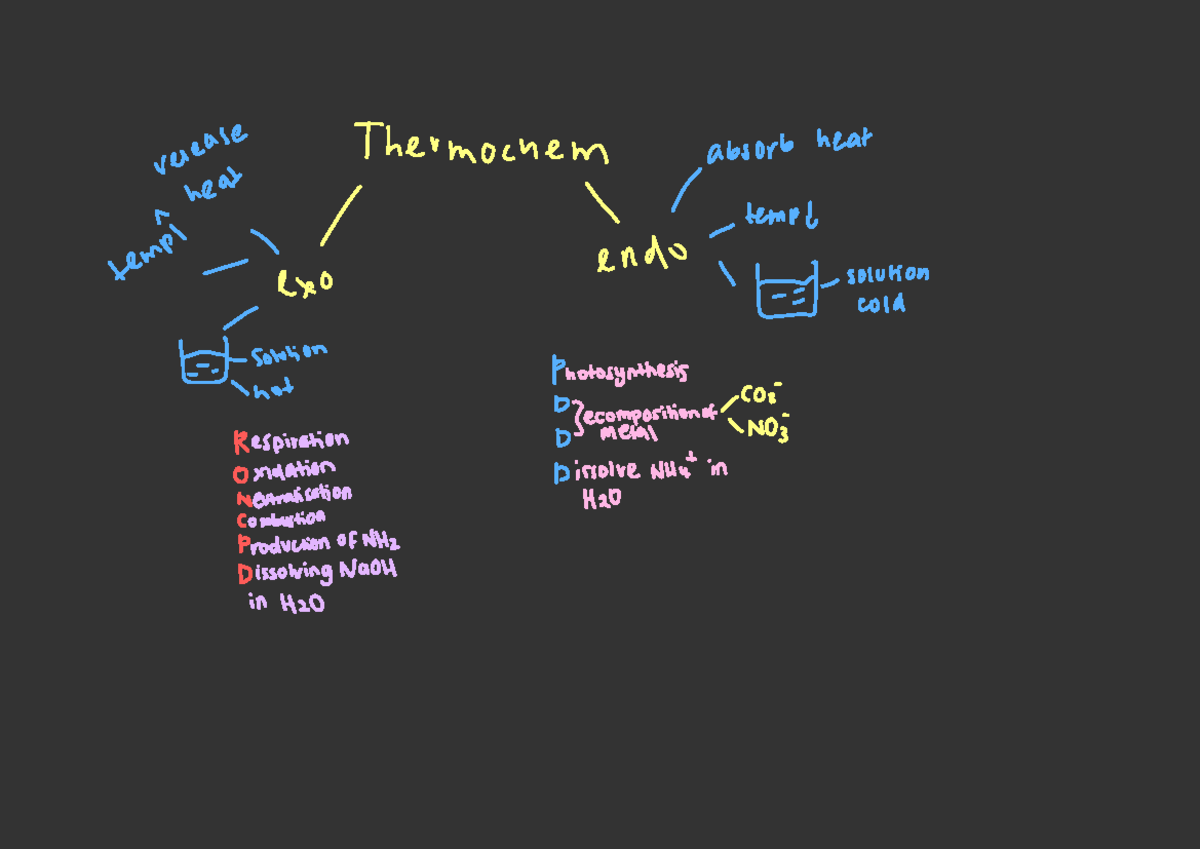 Thermochem
release
heat
temp↑
exo
solution
hot
Respiration
Oxidation
Neutralisation
Combustion
Production of NH2
Dissolving NaOH
in H2O
endo
absorb heat
temp↓
solution
cold
Photosynthesis
D
D
ecomposition of
metal
CO3⁻
NO3⁻
Dissolve NH4⁺ in
H2O